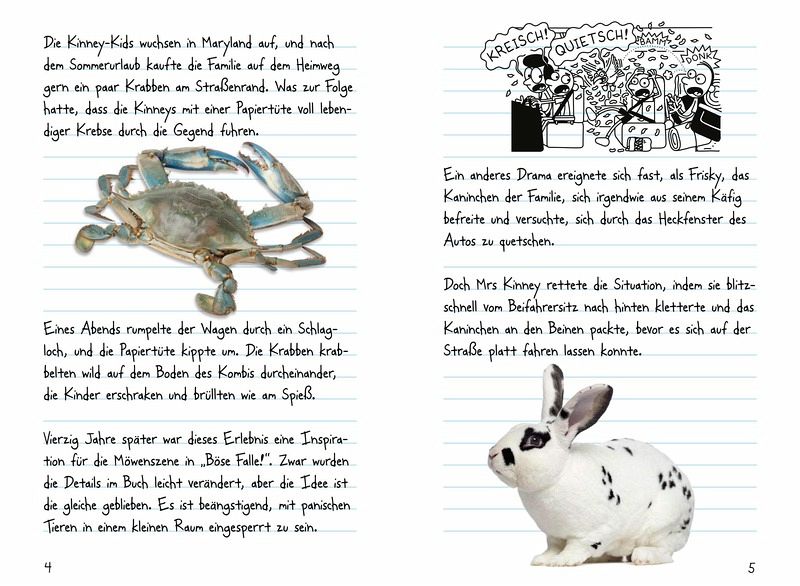 Die Kinney-Kids wuchsen in Maryland auf, und nach
dem Sommerurlaub kaufte die Familie auf dem Heimweg
gern ein paar Krabben am Straßenrand. Was zur Folge
hatte, dass die Kinneys mit einer Papiertüte voll leben-
diger Krebse durch die Gegend fuhren.
Eines Abends rumpelte der Wagen durch ein Schlag-
loch, und die Papiertüte kippte um. Die Krabben krab-
belten wild auf dem Boden des Kombis durcheinander,
die Kinder erschraken und brüllten wie am Spieß.
Vierzig Jahre später war dieses Erlebnis eine Inspira-
tion für die Möwenszene in „Böse Falle!“. Zwar wurden
die Details im Buch leicht verändert, aber die Idee ist
die gleiche geblieben. Es ist beängstigend, mit panischen
Tieren in einem kleinen Raum eingesperrt zu sein.
4
KREISCH!
QUIETSCH!
BAMM
DONK
Ein anderes Drama ereignete sich fast, als Frisky, das
Kaninchen der Familie, sich irgendwie aus seinem Käfig
befreite und versuchte, sich durch das Heckfenster des
Autos zu quetschen.
Doch Mrs Kinney rettete die Situation, indem sie blitz-
schnell vom Beifahrersitz nach hinten kletterte und das
Kaninchen an den Beinen packte, bevor es sich auf der
Straße platt fahren lassen konnte.
5